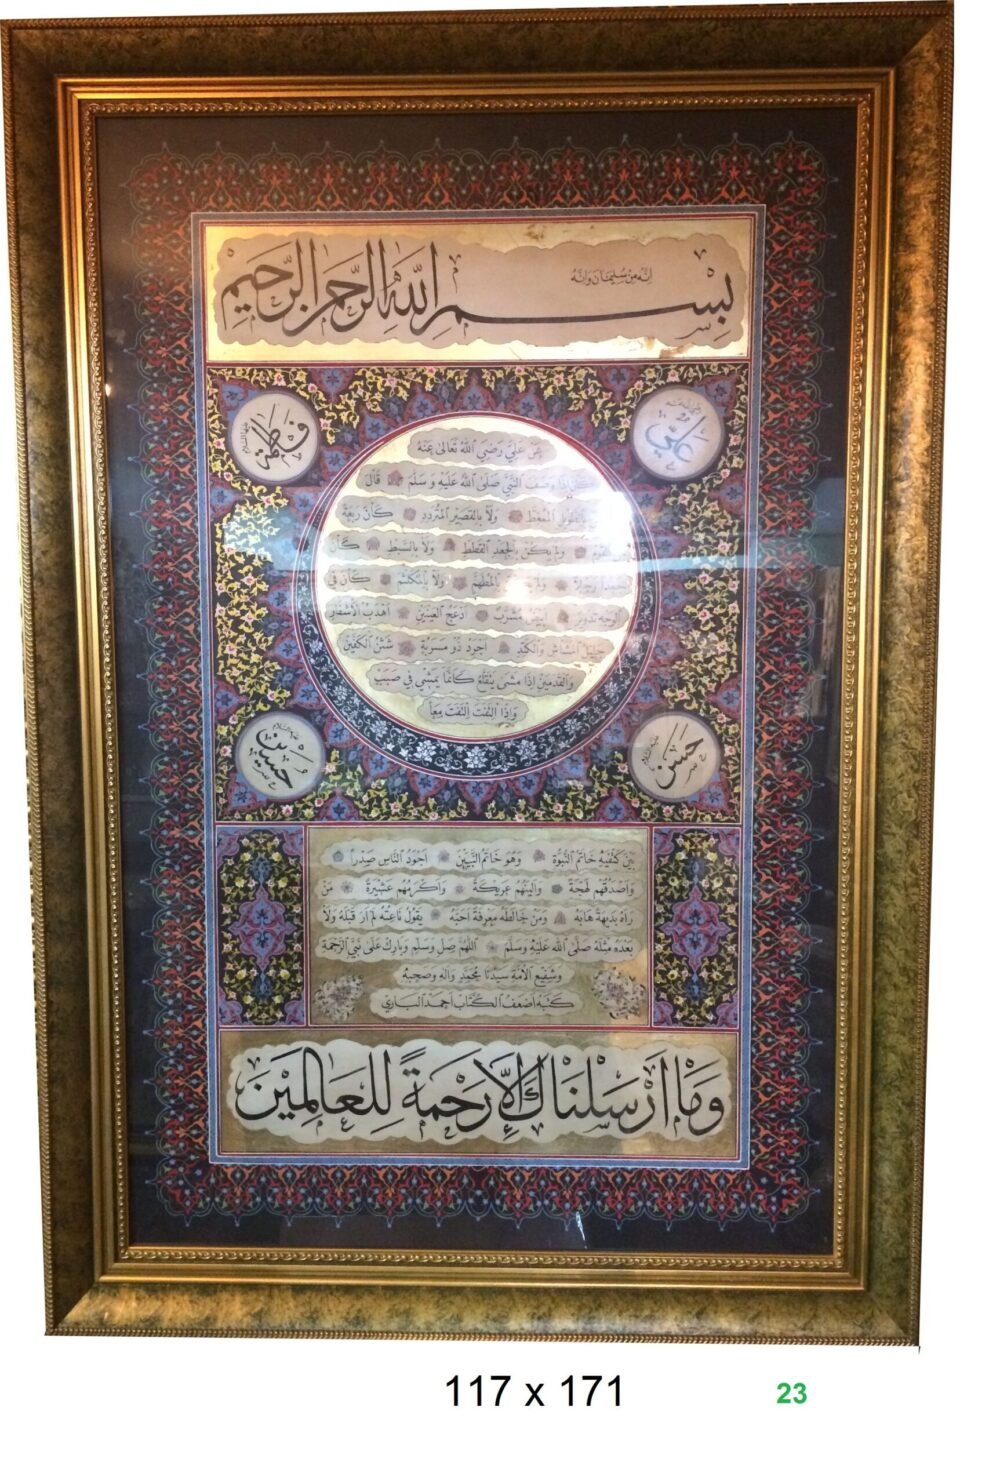 إنه من سليمان وإنه
بسم الله الرحمن الرحيم
علي رضي الله عنه
فاطمة عليها السلام
عن علي رضي الله تعالى عنه
وصف النبي صلى الله عليه وسلم قال
بالطويل الممغط ولا بالقصير المتردد كان ربعة
القوم ولم يكن بالجعد القطط ولا بالسبط كان
جعدا رجلا ولم يكن بالمطهم ولا بالمكلثم كان في
الوجه تدوير ابيض مشرب ادعج العينين اهدب الاشفار
جليل المشاش والكتد اجرد ذو مسربة شثن الكفين
والقدمين اذا مشى يتقلع كانما يمشي في صبب
واذا التفت التفت معا
حسن عليه السلام
حسين عليه السلام
بين كتفيه خاتم النبوة وهو خاتم النبيين اجود الناس صدرا
واصدقهم لهجة والينهم عريكة واكرمهم عشيرة من
رآه بديهة هابه ومن خالطه معرفة احبه يقول ناعته لم ار قبله ولا
بعده مثله صلى الله عليه وسلم اللهم صل وسلم وبارك على نبي الرحمة
وشفيع الامة سيدنا محمد واله وصحبه
كتبه اضعف الكتاب احمد الباري
وما ارسلناك إلا رحمة للعالمين
117 x 171
23